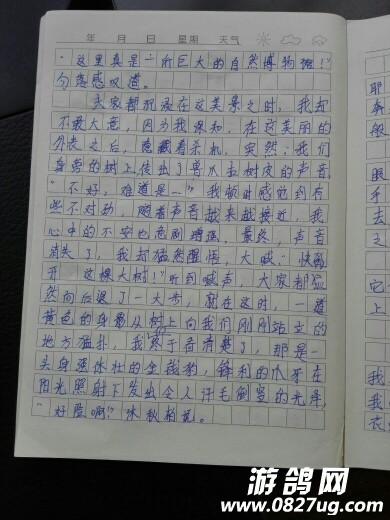 年 月 日 星期 天气
“这里真是一所巨大的自然博物馆！”
匀急感叹道。
大家都沉浸在这美景之时，我却
不敢大意，因为我深知，在这美丽的
外表之后，隐藏着杀机，突然，我们
身旁的树上传出了兽爪抓树皮的声音
“不好，难道是—”我顿时感觉到有
些不对劲，随着声音越来越接近，我
心中的不安也急剧增强。最终，声音
消失了，我却猛然醒悟，大喊“快离
开 这棵大树！”听到喊声，大家都猛
然向后退了一大步，就在这时，一道
黄色的身影从树上向我们刚刚站立的
地方猛扑，我终于看清楚了，那是一
头身强体壮的金钱豹，锋利的爪牙在
阳光照射下发出令人汗毛倒竖的光泽，
“好险啊！”林秋柏说。
耶
奔
般
股
手
去
之
它
我
我
衣
游鸽网
www.0827ug.com